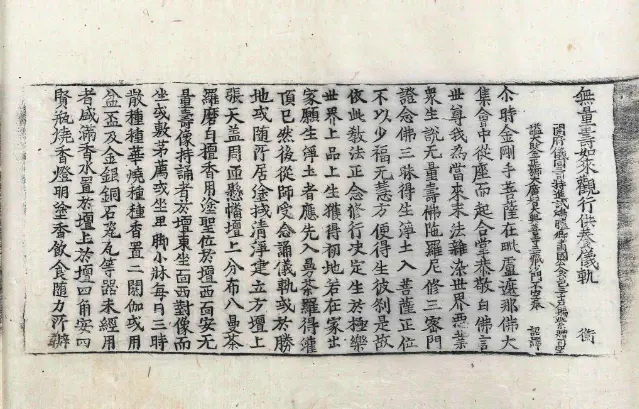 無量壽如來觀行供養儀軌 衡
開府儀同三司特進試鴻臚卿肅國公食邑三千戶賜紫贈司空
謚大鑒正號大廣智大興善寺三藏沙門不空奉 詔譯
尒時金剛手菩薩在毗盧遮那佛大
集會中從座而起合掌恭敬白佛言
世尊我為當來末法雜染世界惡業
衆生說无量壽佛陁羅尼修三密門
證念佛三昧得生淨土入菩薩正位
不以少福无慧方便得生彼刹是故
依此教法正念修行決定生於極樂
世界上品上生獲得初地若在家出
家願生淨土者應先入曼荼羅得灌
頂已然後從師受念誦儀軌或於勝
地或隨所居塗拭清淨建立方壇上
張天盖周匝懸幡壇上分布八曼荼
羅磨白檀香用塗聖位於壇西面安无
量壽像持誦者於壇東坐面西對像而
坐或敷茅薦或坐卑脚小牀每日三時
散種種華燒種種香置二閼伽或用
盆盃及金銀銅石瓷瓦等器未經用
者盛滿香水置於壇上於壇四角安四
賢瓶燒香燈明塗香飲食隨力所辦